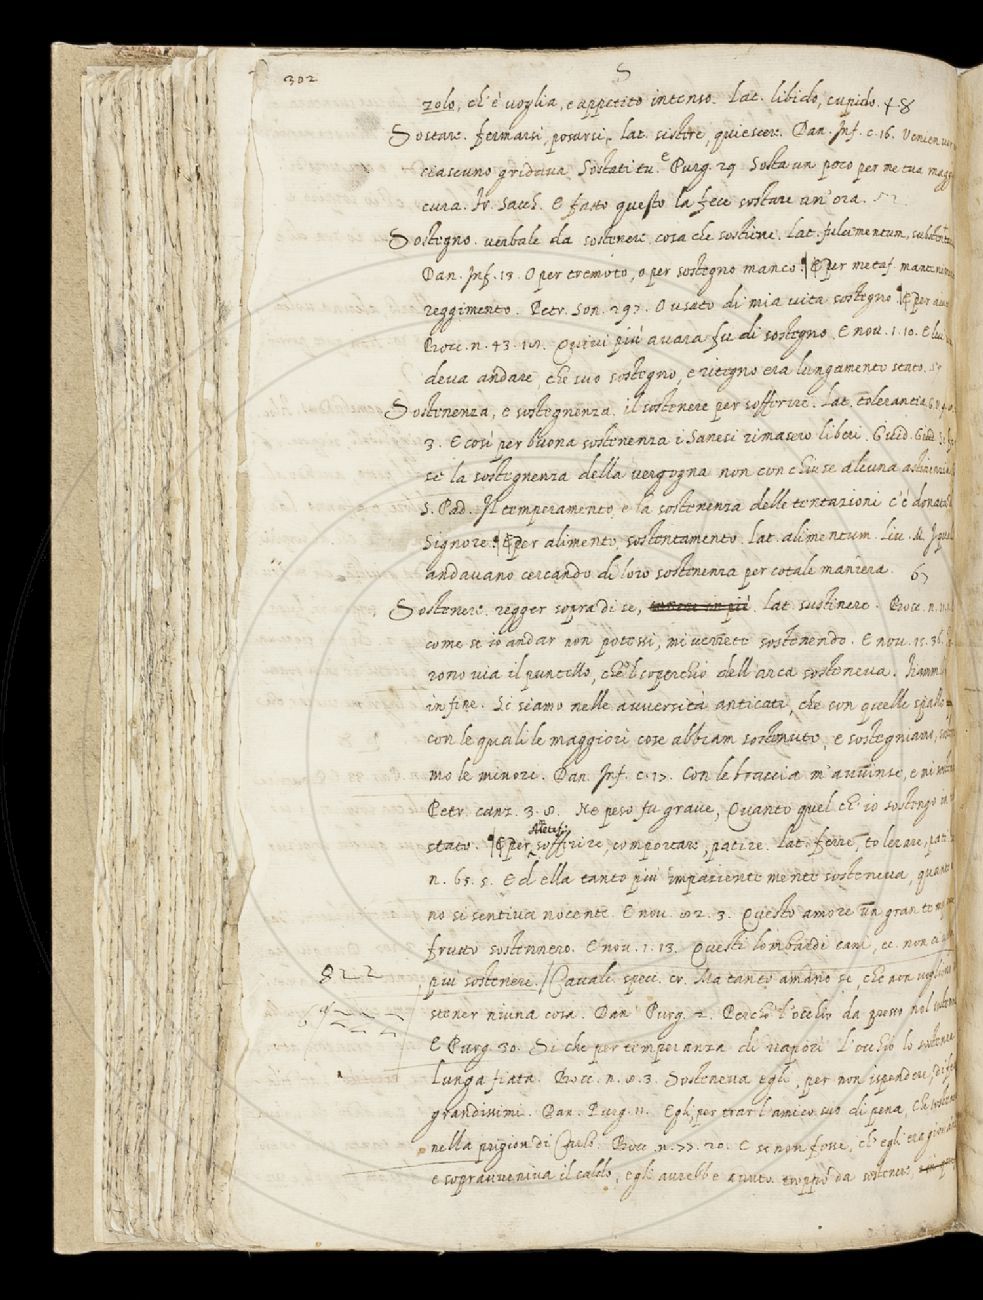 302
S
zolo, ch'è uoglia, e appetito intenso. lat. libido, cupido. 48
Sostare. fermarsi, posarsi, lat. sistere, quiescere. Dan. Inf. c. 16. Venien
ciascuno gridaua, Sostati tu. E Purg. 29. Sosta un poco per me tua magg
cura. Fr. Sacch. E fatto questo la fece sostare un'ora. 52
Sostegno. uerbale da sostenere, cosa che sostiene. lat. fulcimentum,
Dan. Inf. 13. O per tremoto, o per sostegno manco. E per metaf.
reggimento. Petr. Son. 297. O usato di mia uita sostegno. E per
Bocc. n. 43. 18. Quiui più auara fu di sostegno. E nou. 1. 10. E lui
deua andare, che suo sostegno, e ritegno era lungamento stato.
Sostenenza, e sostegnenza. il sostenere per sofferire. lat. tolerancia.
3. E così per buona sostenenza i Sanesi rimasero liberi. Guid. Giud.
se la sostegnenza della uergogna non conchiuse alcuna
S. Pad. Il temperamento, e la sostenenza delle tentazioni c'è donata
Signore. E per alimento, sostentamento. lat. alimentum. Liu. M.
andauano cercando di loro sostenenza per cotale maniera. 67
Sostenere. regger sopra di se, lat. sustinere. Bocc. n.
come se io andar non potessi, mi uenite sostenendo. E nou. 15. 36.
rono uia il puntello, che 'l coperchio dell'arca sosteneua. Fiamm.
in fine. Si siamo nelle auuersità anticati, che con quelle spalle
con le quali le maggiori cose abbiam sostenuto, e sostegniamo,
mo le minori. Dan. Inf. c. 17. Con le braccia m'auuinse, e mi
Petr. canz. 3. 8. Ne peso fu graue, Quanto quel ch'io sostengo in
stato. E per sofferire, comportare, patire. lat. ferre, tolerare, pati
n. 65. 5. Ed ella tanto più impaciente mente sosteneua, quanto
no si sentiua nocente. E nou. 82. 3. Questo amore un gran
frutto sostennero. E nou. 1. 13. Questi lombardi cani, ec. non ci
822
più sostenere. / Caualc. specc. cr. Ma tanto amano se, che non
stener niuna cosa. Dan. Purg. 2. Perchè l'occhio da presso nol
E Purg. 30. Sì che per temperanza di uapori L'occhio lo
Lunga fiata. Bocc. n. 8. 3. Sosteneua egli, per non ispendere,
grandissimi. Dan. Purg. 11. Egli per trar l'amico suo di pena,
nella prigion di Carlo. Bocc. n. 77. 20. E se non fosse, ch'egli era
e soprauueniua il caldo, egli aurebbe auuto troppo da sostenere,